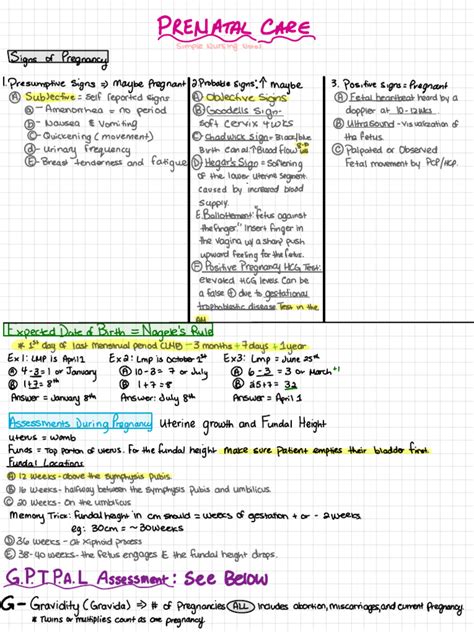 PRENATAL CARE
Simple Nursing Notes
Signs of Pregnancy
1. Presumptive Signs ⇒ Maybe Pregnant
Ⓐ Subjective = Self reported signs
a - Amenorrhea = no period
b - Nausea & Vomiting
c - Quickening (movement)
d - Urinary frequency
E - Breast tenderness and fatigue
2. Probable signs: ↑ maybe
Ⓐ Objective Signs
Ⓑ Goodells Sign-
Soft cervix 4wks
Ⓒ Chadwick Sign = Black/blue
Birth Canal ↑ Blood flow
Ⓓ Hegar's Sign = Softening
of the lower uterine segment
caused by increased blood
supply.
E. Ballottement: Fetus against
the finger." Insert finger in
the vagina w/ a sharp push
upward feeling for the fetus.
Ⓕ Positive Pregnancy HCG Test:
elevated HCG levels. Can be
a false ⊕ due to gestational
trophoblastic disease Test in the
AM
3. Positive signs = Pregnant
Ⓐ Fetal heartbeat heard by a
doppler at 10-12wks
Ⓑ Ultrasound - visualization of
the fetus.
Ⓒ Palpated or Observed
Fetal movement by PCP/HCP.
Expected Date of Birth = Nagele's Rule
* 1st day of last menstrual period (LMB - 3 months + 7 days + 1 year
Ex 1: LMP is April 1
Ⓐ 4-3=1 or January
Ⓑ 1+7=8th
Answer = January 8th
Ex 2: Lmp is October 1st
Ⓐ 10-3 = 7 or July
Ⓑ 1+7=8
Answer: July 8th
Ex3: Lmp = June 25th
Ⓐ 6-3 = 3 or March +1
Ⓑ 25+7= 32
Answer = April 1
Assessments During Pregnancy Uterine growth and Fundal Height
uterus = womb
Funds = Top portion of uterus. For the fundal height make sure Patient empties their bladder first
Fundal Locations
Ⓐ 12 weeks - above the symphysis pubis.
Ⓑ 16 weeks - halfway between the symphysis Pubis and umbilicus.
Ⓒ 20 weeks - On the umbilicus
Memory Trick: Fundal height in cm should = weeks of gestation + or - 2 weeks.
eg: 30cm = ~30weeks
Ⓓ 36 weeks - at xiphoid process
Ⓔ 38-40 weeks - the fetus engages & the fundal height drops.
G.P.T.P.A.L Assessment: See Below
G - Gravidity (Gravida) ⇒ # of Pregnancies ALL includes abortion, miscarriages, and current pregnancy
* Twins or multiples count as one pregnancy.